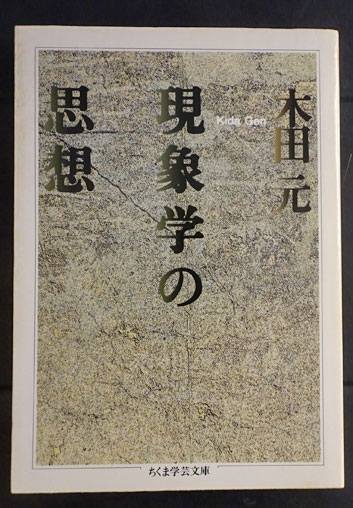 木田元
Kida Gen
現象学の
思想
ちくま学芸文庫